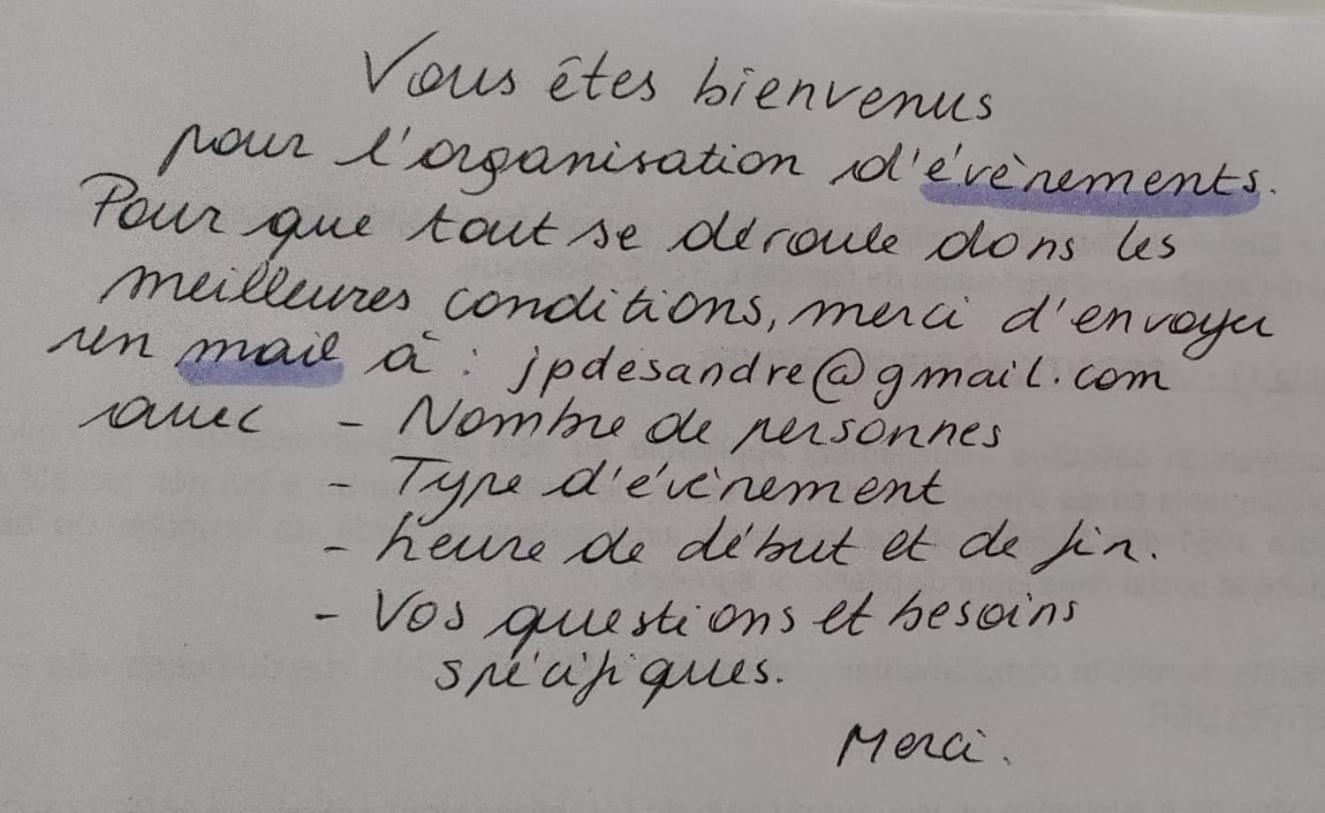 Vous êtes bienvenus
pour l'organisation d'évènements.
Pour que tout se déroule dans les
meilleures conditions, merci d'envoyer
un mail à : jpdesandre@gmail.com
avec - Nombre de personnes
- Type d'évènement
- heure de début et de fin.
- Vos questions et besoins
spécifiques.
Merci.